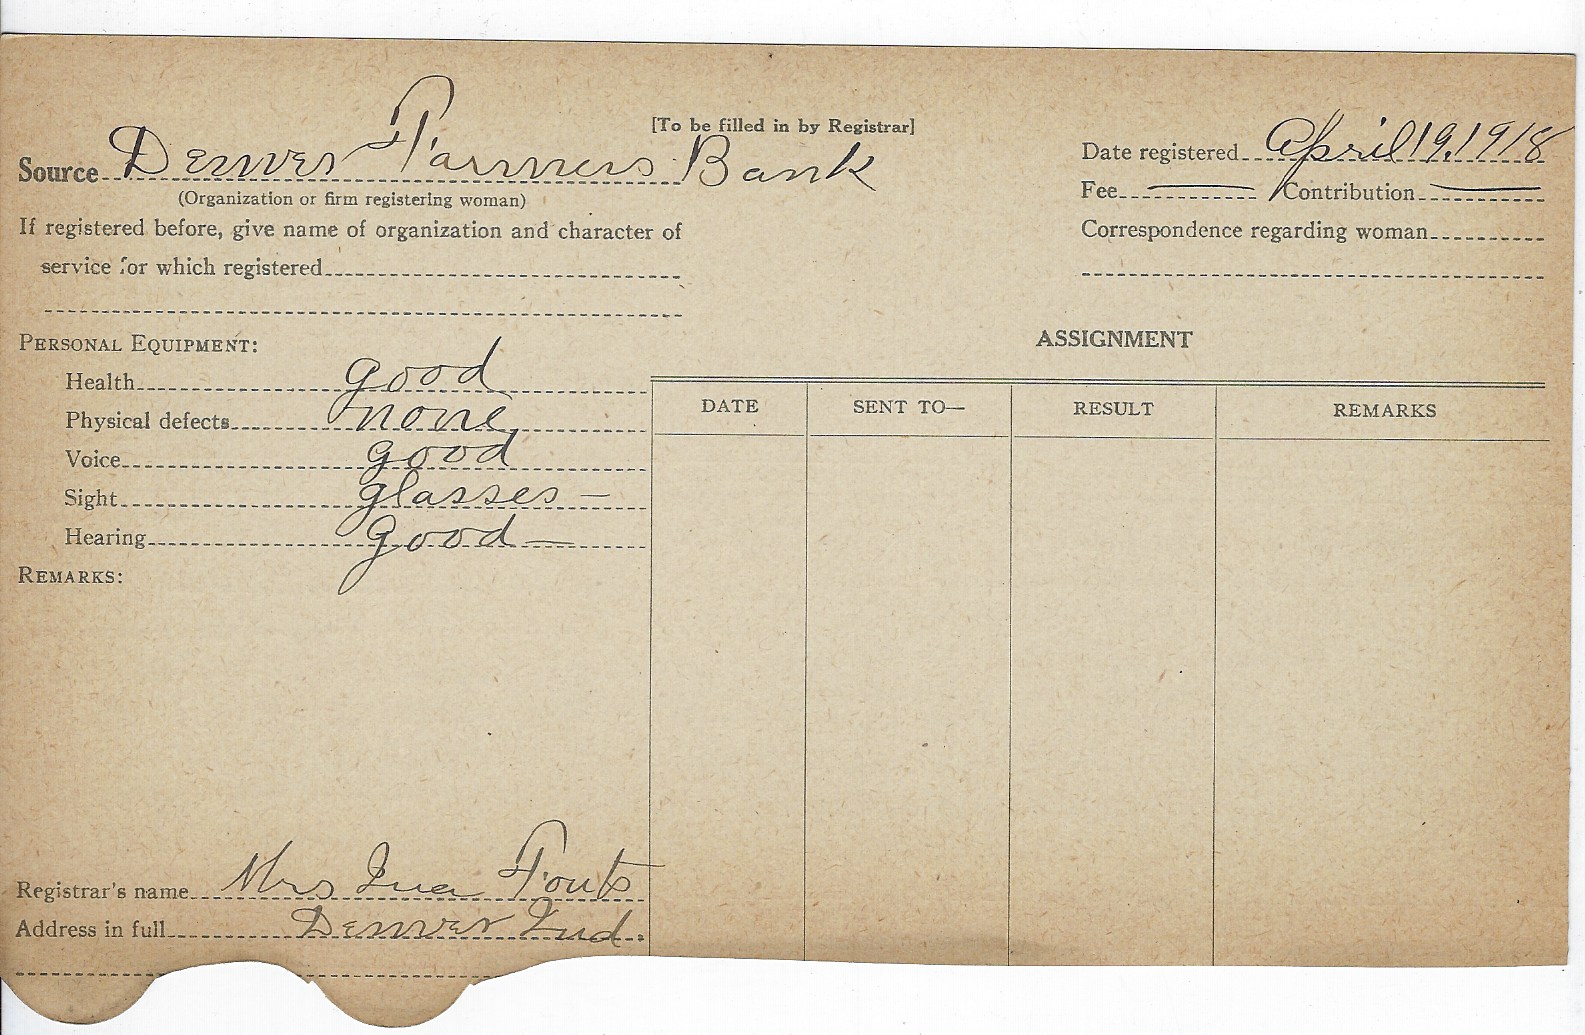 [To be filled in by Registrar]
Source Denver Farmers Bank
(Organization or firm registering woman)
If registered before, give name of organization and character of
service for which registered
Date registered April 19, 1918
Fee — Contribution —
Correspondence regarding woman
PERSONAL EQUIPMENT:
Health good
Physical defects none
Voice good
Sight glasses —
Hearing good —
REMARKS:
ASSIGNMENT
DATE SENT TO— RESULT REMARKS
Registrar's name Mrs Iva Fouts
Address in full Denver Ind.